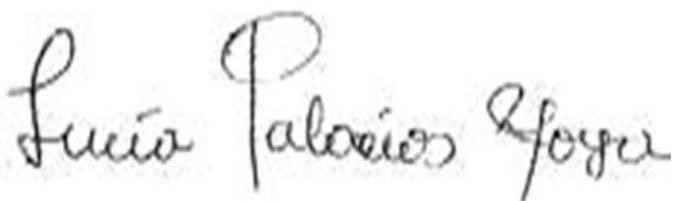 Lucía Palacios Moya